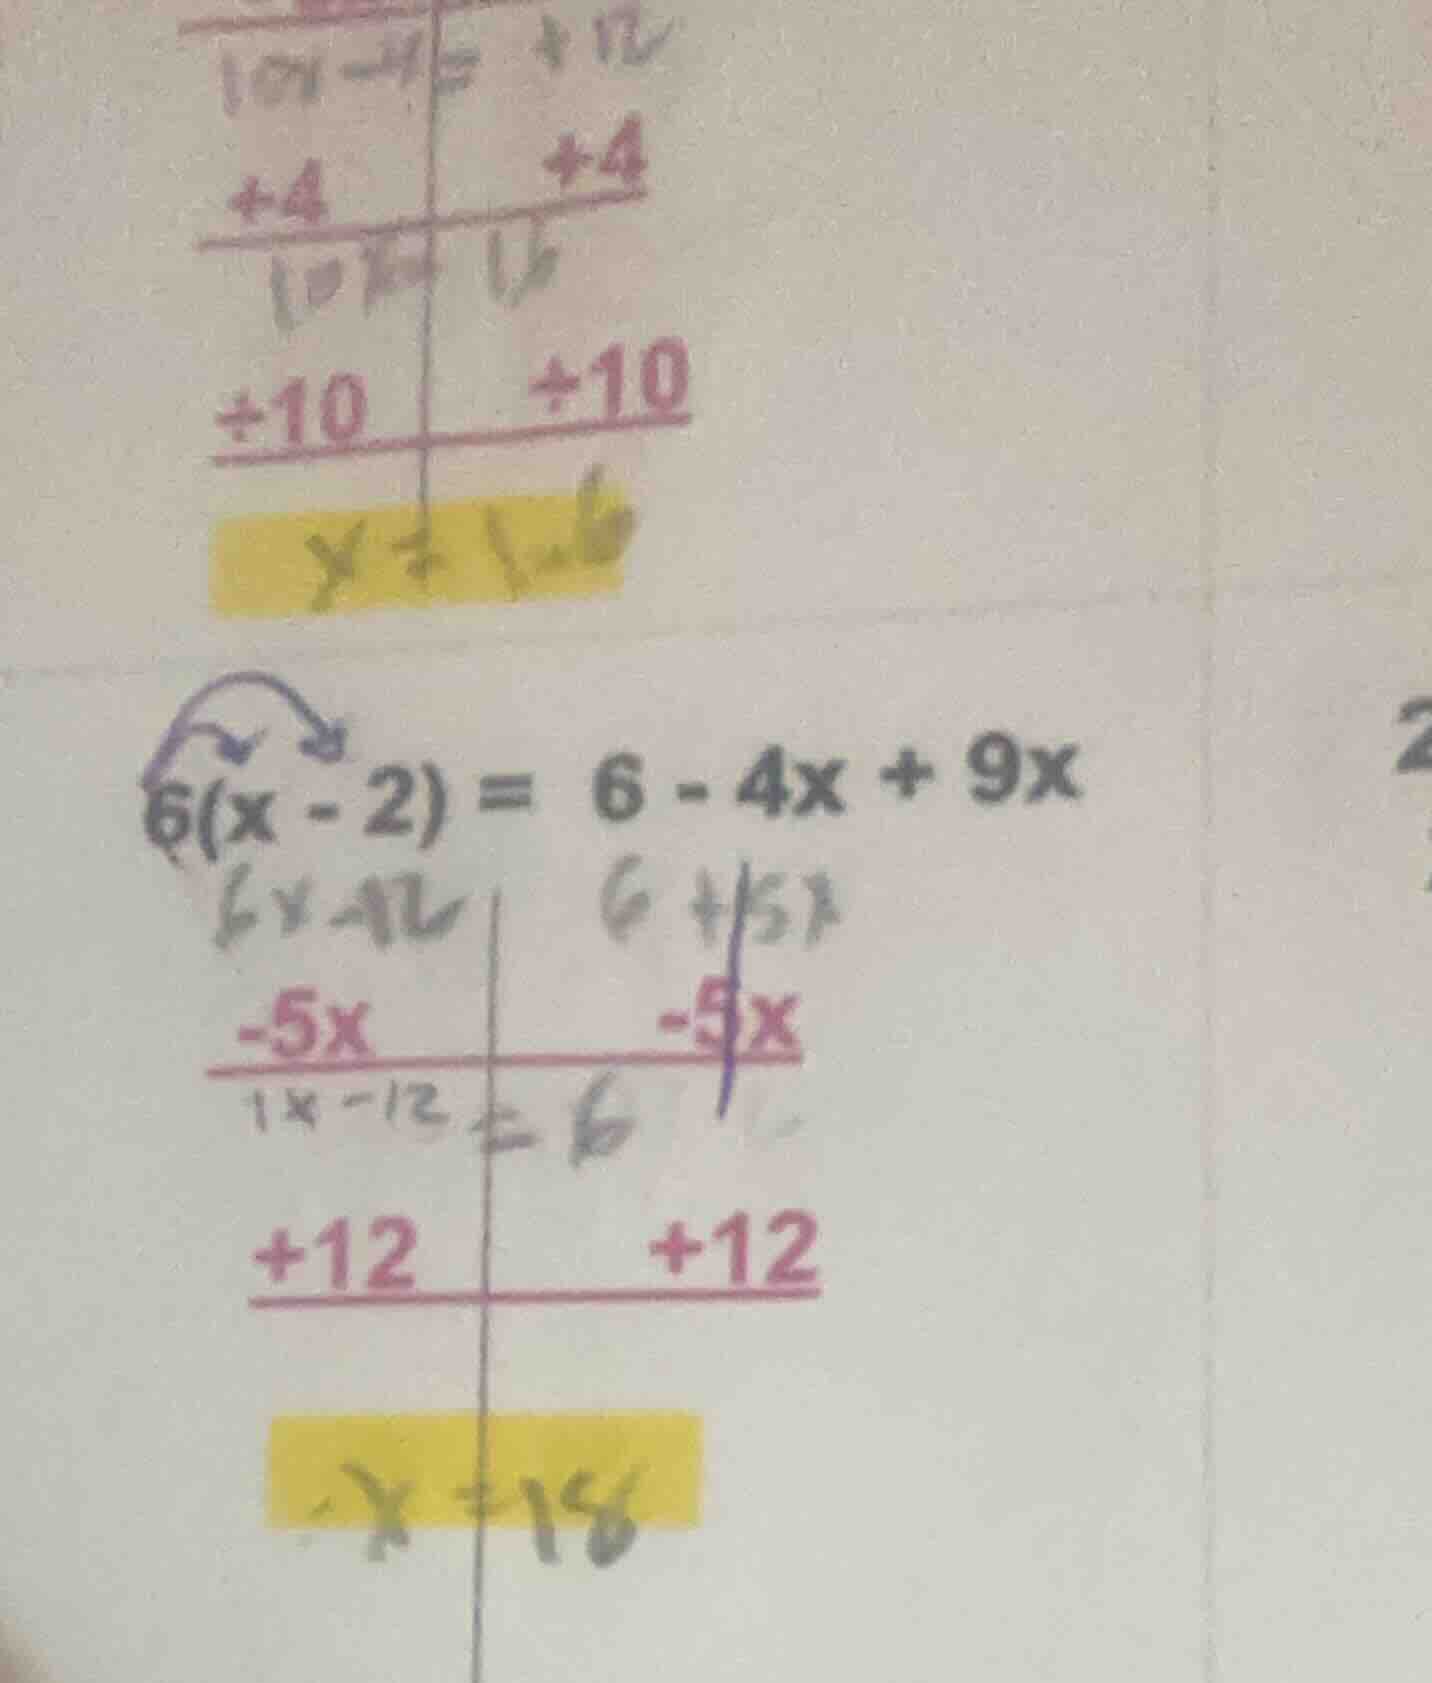 10x - 4 = +12
+4 +4
10x = 16
÷10 ÷10
x = 1.6
6(x - 2) = 6 - 4x + 9x
6x - 12 6 + 5x
-5x -5x
1x - 12 = 6
+12 +12
x = 18
2